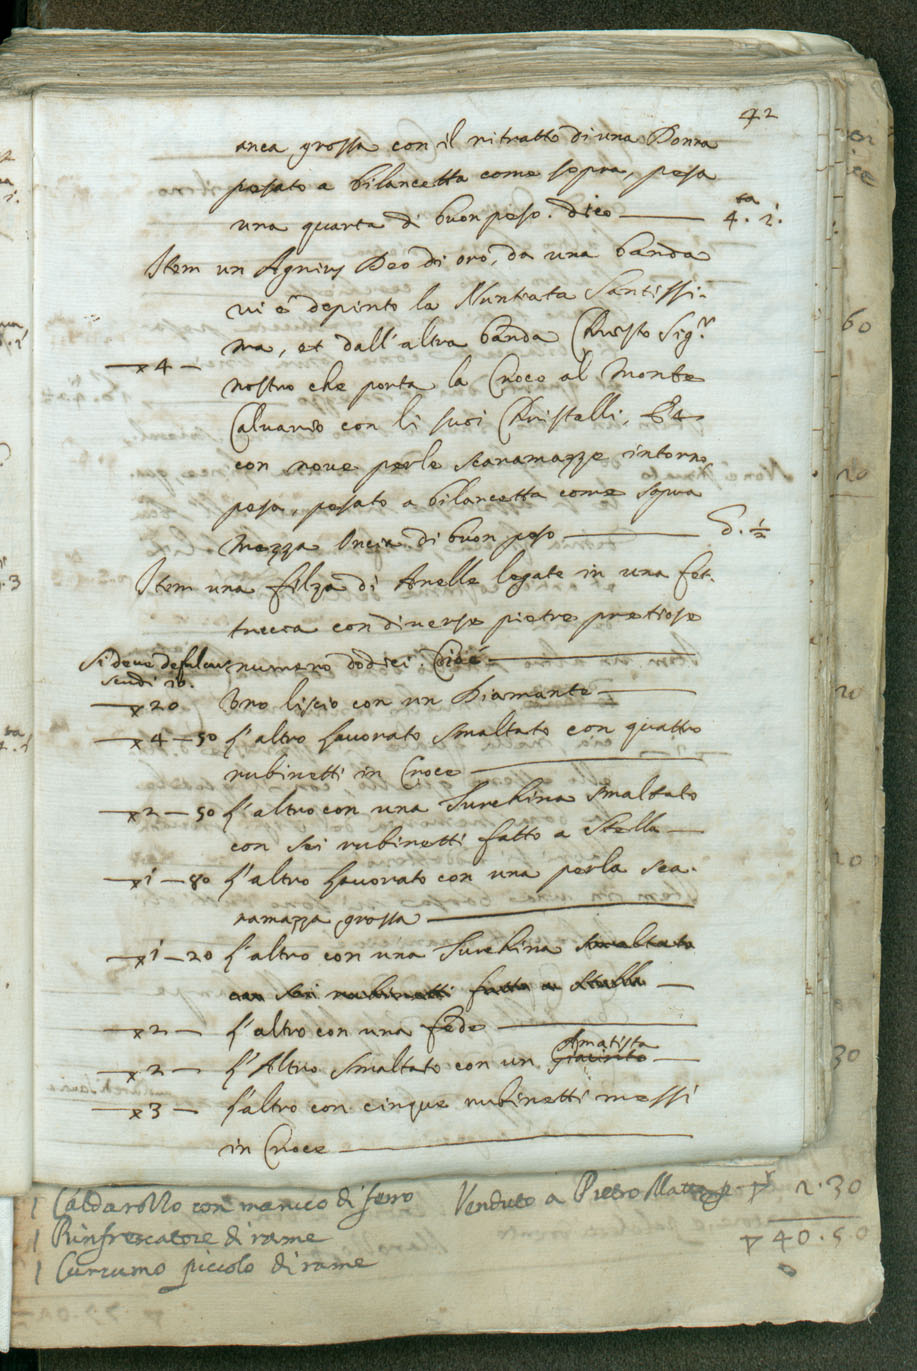 42
anea grossa con il ritratto di una Donna
pesato a bilancetta come sopra, pesa
una quarta di buon peso. dico — 4.ta 1.
Item un Agnius Deo di oro, da una banda
vi è depinto la Nuntiata Santissi-
ma, et dall'altra banda Christo Sig.r
—x4— nostro che porta la Croce al Monte
Calvario con li suoi Christalli, Et
con nove perle scaramazze intorno
pesa, pesato a bilancetta come sopra
mezza Oncia di buon peso — 1/2
Item una filza di Anelle legate in una fet-
tuccia con diverse pietre pretiose
Si deve
scudi 10.
numero dodici. Cioè —
—x20 Uno liscio con un Diamante —
—x4—50 L'altro lavorato smaltato con quattro
rubinetti in Croce —
—x2—50 L'altro con una Turchina smaltato
con sei rubinetti fatto a stella —
—x1—80 L'altro lavorato con una perla sca-
ramazza grossa —
—x1—20 L'altro con una Turchina smaltata
con sei rubinetti fatto a stella —
—x2— L'altro con una fede —
Amatista
—x2— L'Altro smaltato con un Giacinto —
—x3— L'altro con cinque rubinetti messi
in Croce —
1 Caldarozzo con manico di ferro Venduto a Pietro 2.30
1 Rinfrescatore di rame 40.50
1 Cucumo piccolo di rame
60
20
20
20
30